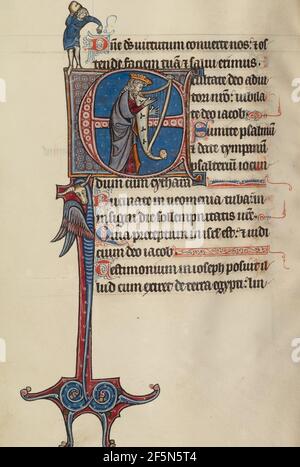 Dñe ds uirtutum conuerte nos: ⁊ os
tende faciem tuam ⁊ salui erimus.
Exultate deo adiu
tori nr̃o: iubila
te deo iacob.
Sumite psalmũ
et date tympanũ:
psalterium iocun
dum cum cythara
in neomenia tuba: in
die sollempnitatis
preceptum in isrl̃ est: ⁊ iudi
cium deo iacob
Testimonium in ioseph posuit il
lud cum exiret de terra egypti: lin
alamy
2F5N5T4